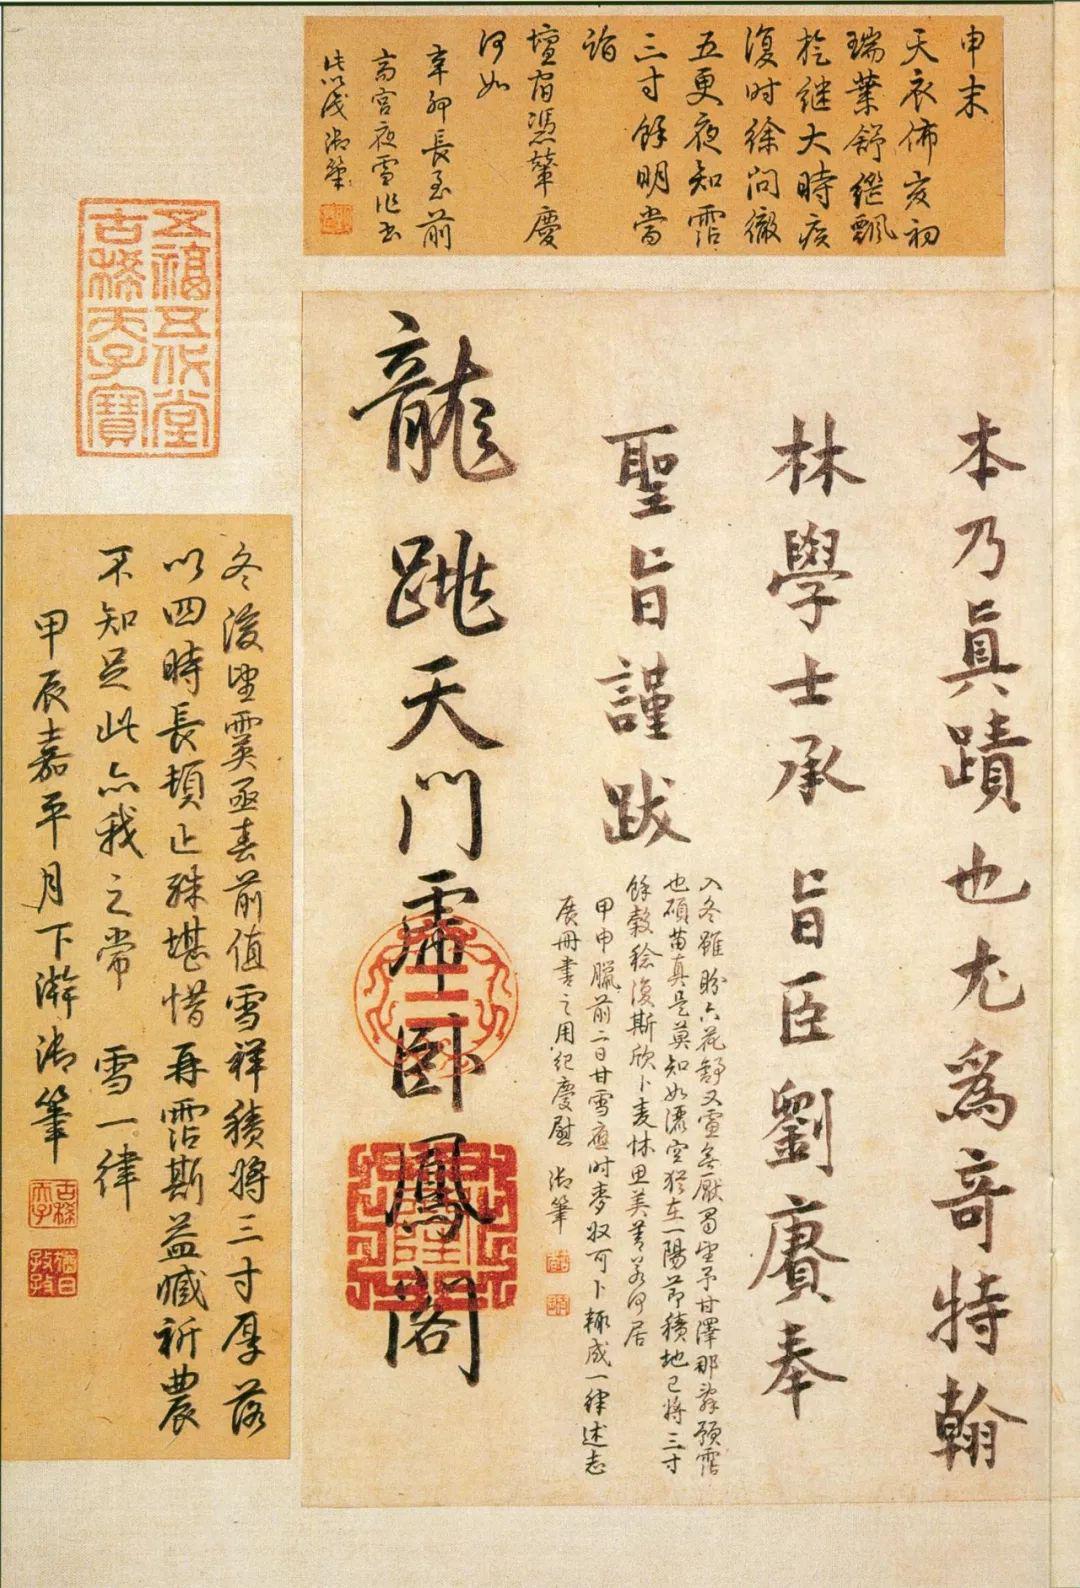 申末
天衣佈亥初
瑞葉舒繼飄
於継大時疾
復时徐问徹
五更夜知霑
三寸餘明當
詣
壇宿憑輦慶
何如
辛卯長至前
斋宮夜雪作书
此以識 御筆
本乃真蹟也尤爲奇特翰
林學士承旨臣劉賡奉
聖旨謹跋
龍跳天門虎卧鳳閣
入冬雖盼六花舒又霣無厭蜀望予甘澤那辞預霑
也碩苗真是莫知如瀌空猶在一陽節積地已将三寸
餘敦稔復斯欣卜麦怵思美善若何居
甲申臘前二日甘雪應时麥收可卜輒成一律述志
展冊書之用紀慶慰 御筆
五福五代堂
古稀天子寶
冬後望霙亟春前值雪祥積将三寸厚落
以四時長頓止殊堪惜再霑斯益臧祈農
不知足此亦我之常 雪一律
甲辰嘉平月下澣御筆
古稀
天子
猶日
孜孜